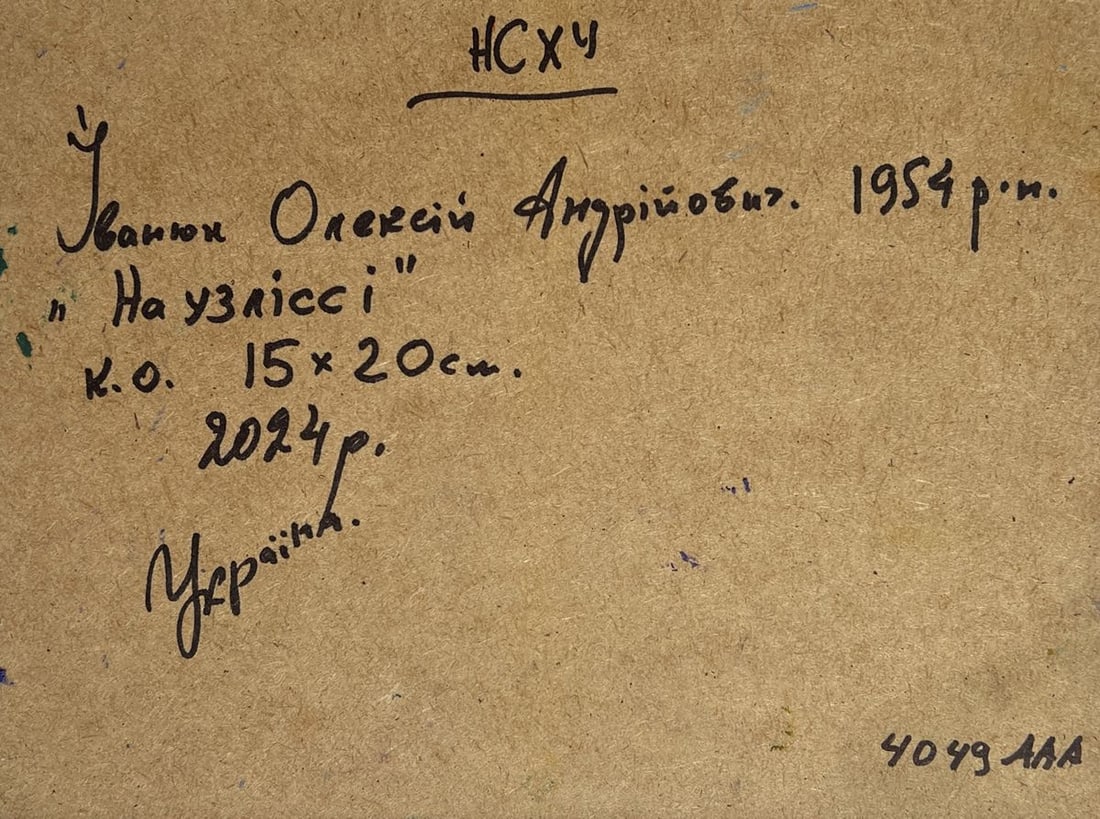 НСХУ
Іванюк Олексій Андрійович. 1954 р.н.
" На узліссі "
к.о. 15 × 20 см.
2024 р.
Україна.
4049 ААА